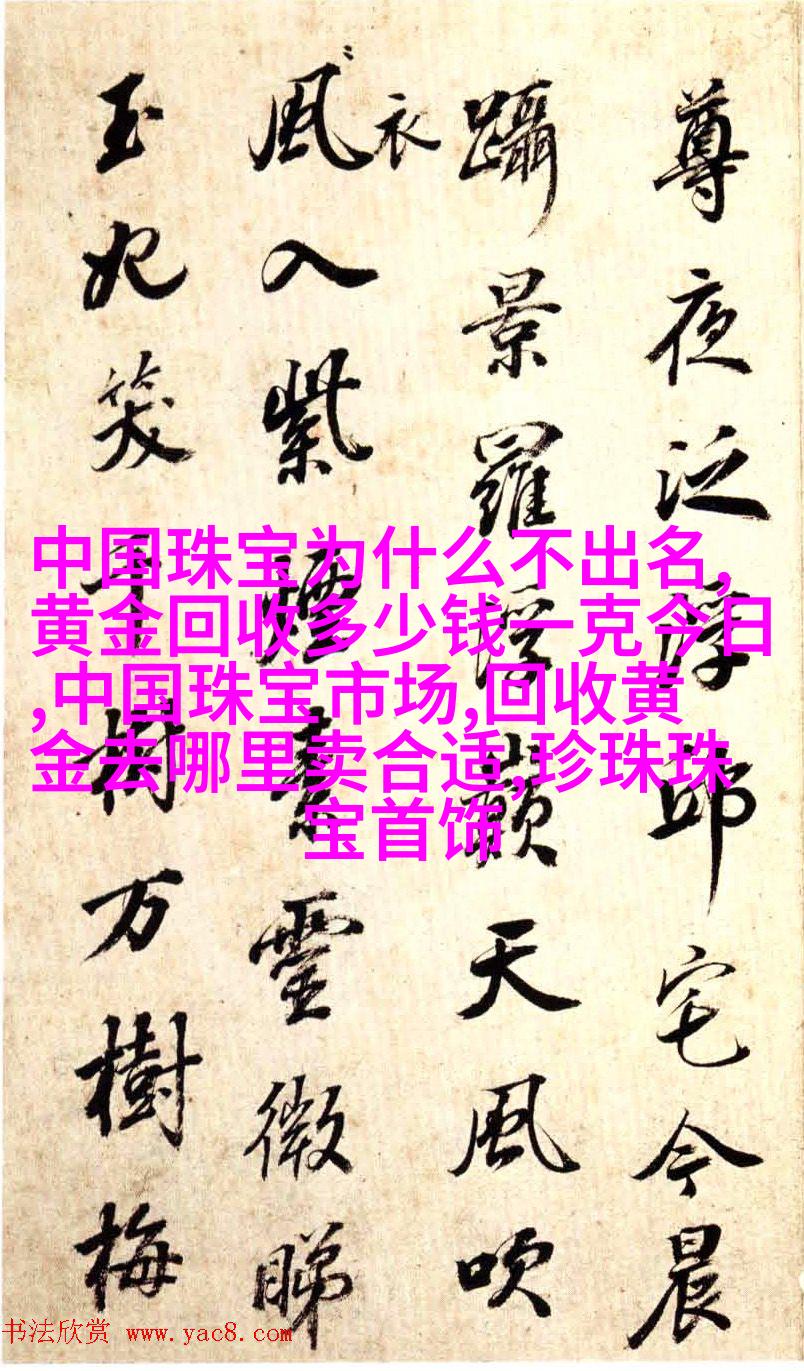 尊夜泛浮邱宅今晨
躡景羅浮巔天風吹
衣
風入紫煙素霊微睇
玉妃笑千樹万樹梅
中国珠宝为什么不出名,
黄金回收多少钱一克今日
,中国珠宝市场,回收黄
金去哪里卖合适,珍珠珠
宝首饰
书法欣赏 www.yac8.com